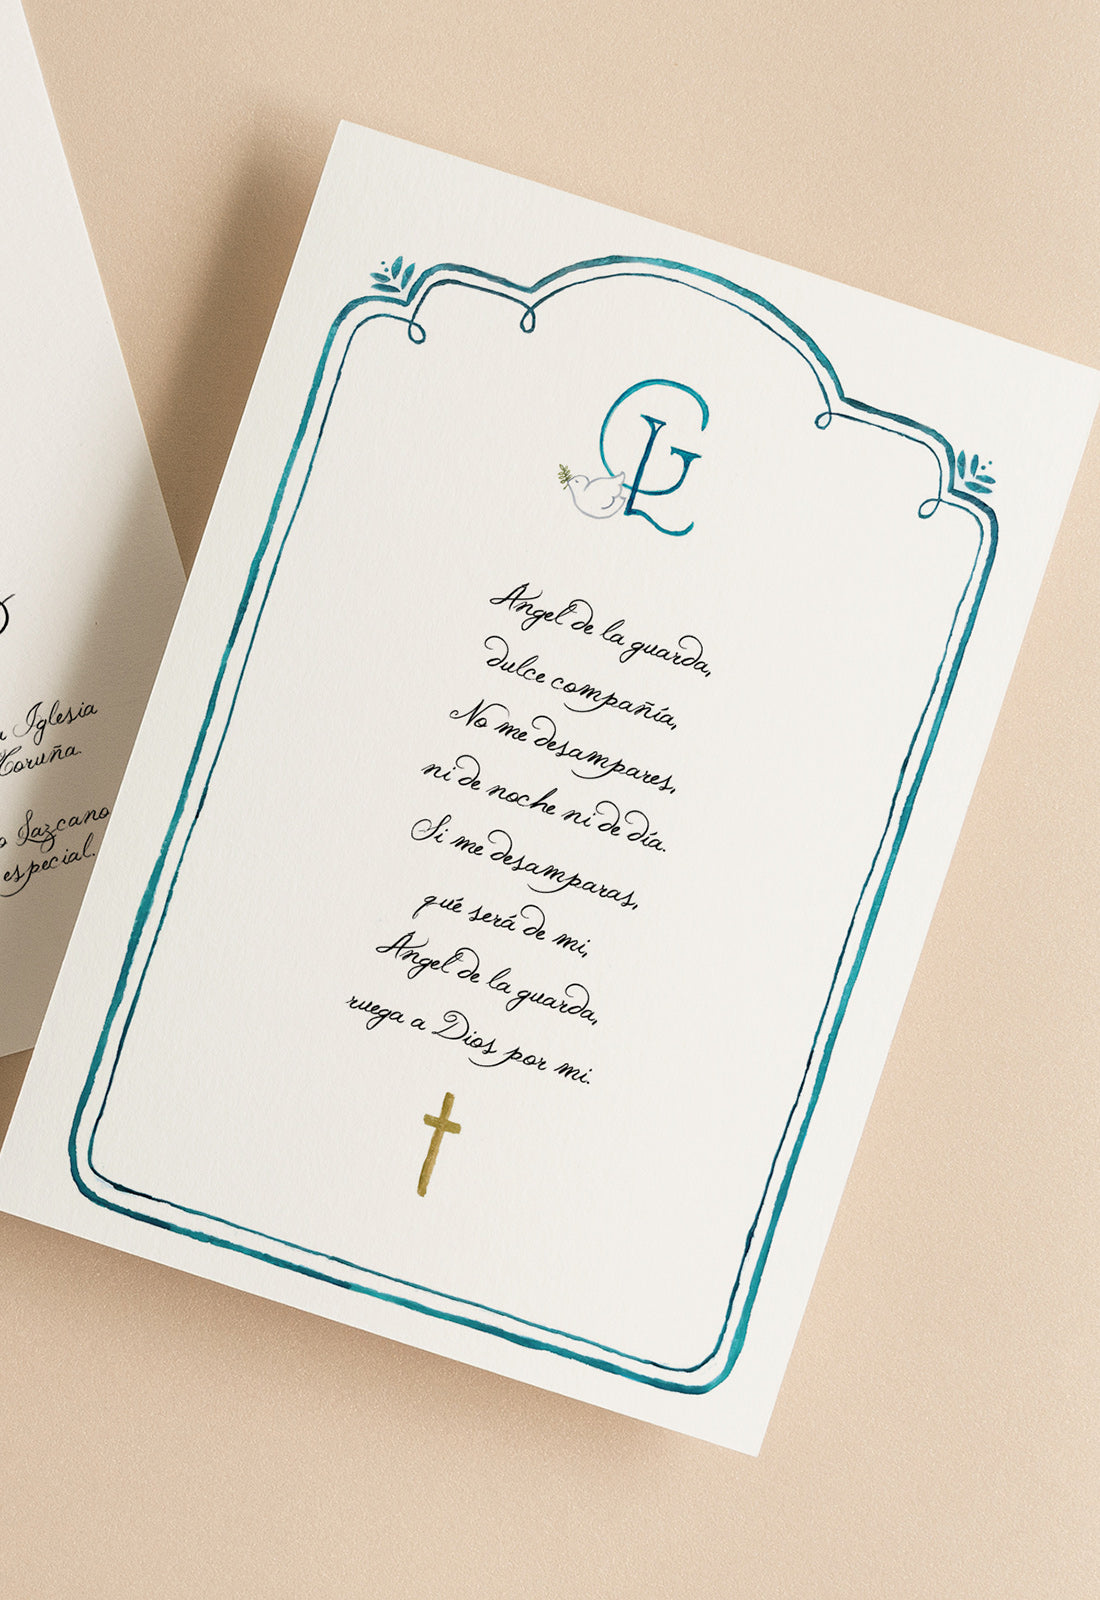 GL
Ángel de la guarda,
dulce compañía,
No me desampares,
ni de noche ni de día.
Si me desamparas,
qué será de mi,
Ángel de la guarda,
ruega a Dios por mi.
Iglesia
Coruña.
Lazcano
especial.